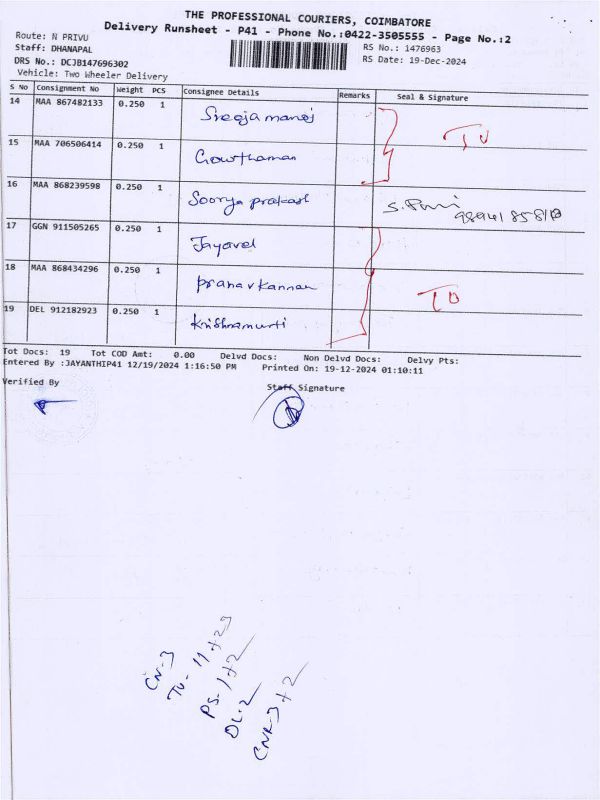 THE PROFESSIONAL COURIERS, COIMBATORE
Delivery Runsheet - P41 - Phone No.:0422-3505555 - Page No.:2
Route: N PRIVU
RS No.: 1476963
Staff: DHANAPAL
RS Date: 19-Dec-2024
DRS No.: DCJB147696302
Vehicle: Two Wheeler Delivery
S No Consignment No Weight PCS Consignee Details Remarks Seal & Signature
14 MAA 867482133 0.250 1 Sreeja manoj
TU
15 MAA 706506414 0.250 1 Gowthaman
16 MAA 868239598 0.250 1 Soorya prakash S.
17 GGN 911505265 0.250 1 Jayavel
18 MAA 868434296 0.250 1 pranav kannan
TU
19 DEL 912182923 0.250 1 Krishnamurti
Tot Docs: 19 Tot COD Amt: 0.00 Delvd Docs: Non Delvd Docs: Delvy Pts:
Entered By :JAYANTHIP41 12/19/2024 1:16:50 PM Printed On: 19-12-2024 01:10:11
Verified By Staff Signature
CN-3
TU-11+29
PS-1+2
DL-2
CNR-3+2